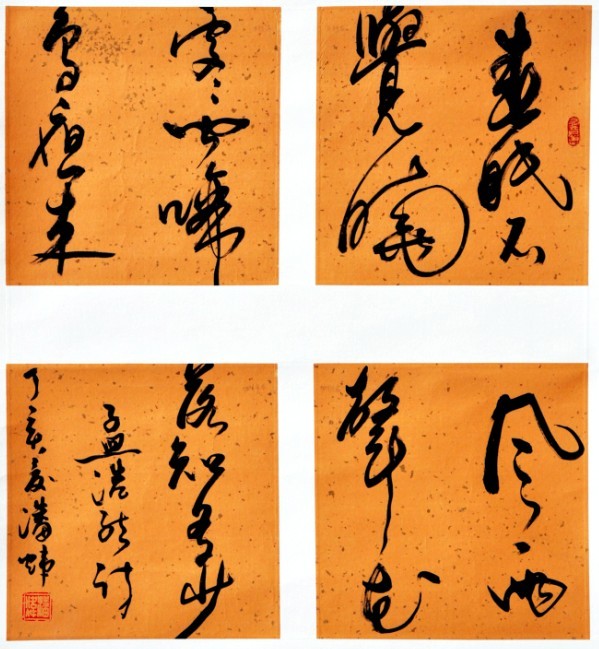 春眠不
覺曉
處々聞啼
鳥夜来
风雨
聲花
落知多少
孟浩然詩
丁亥夏潘炜